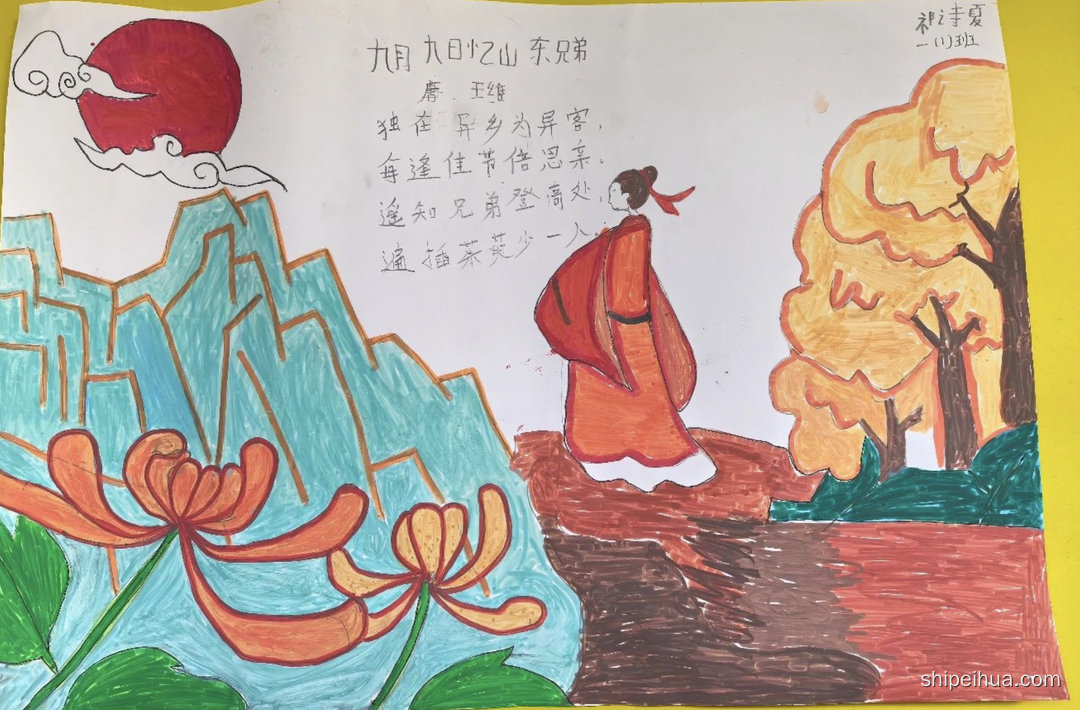 九月九日忆山东兄弟
唐 王维
独在异乡为异客，
每逢佳节倍思亲。
遥知兄弟登高处，
遍插茱萸少一人。
祁诗夏
一(1)班
shipeihua.com